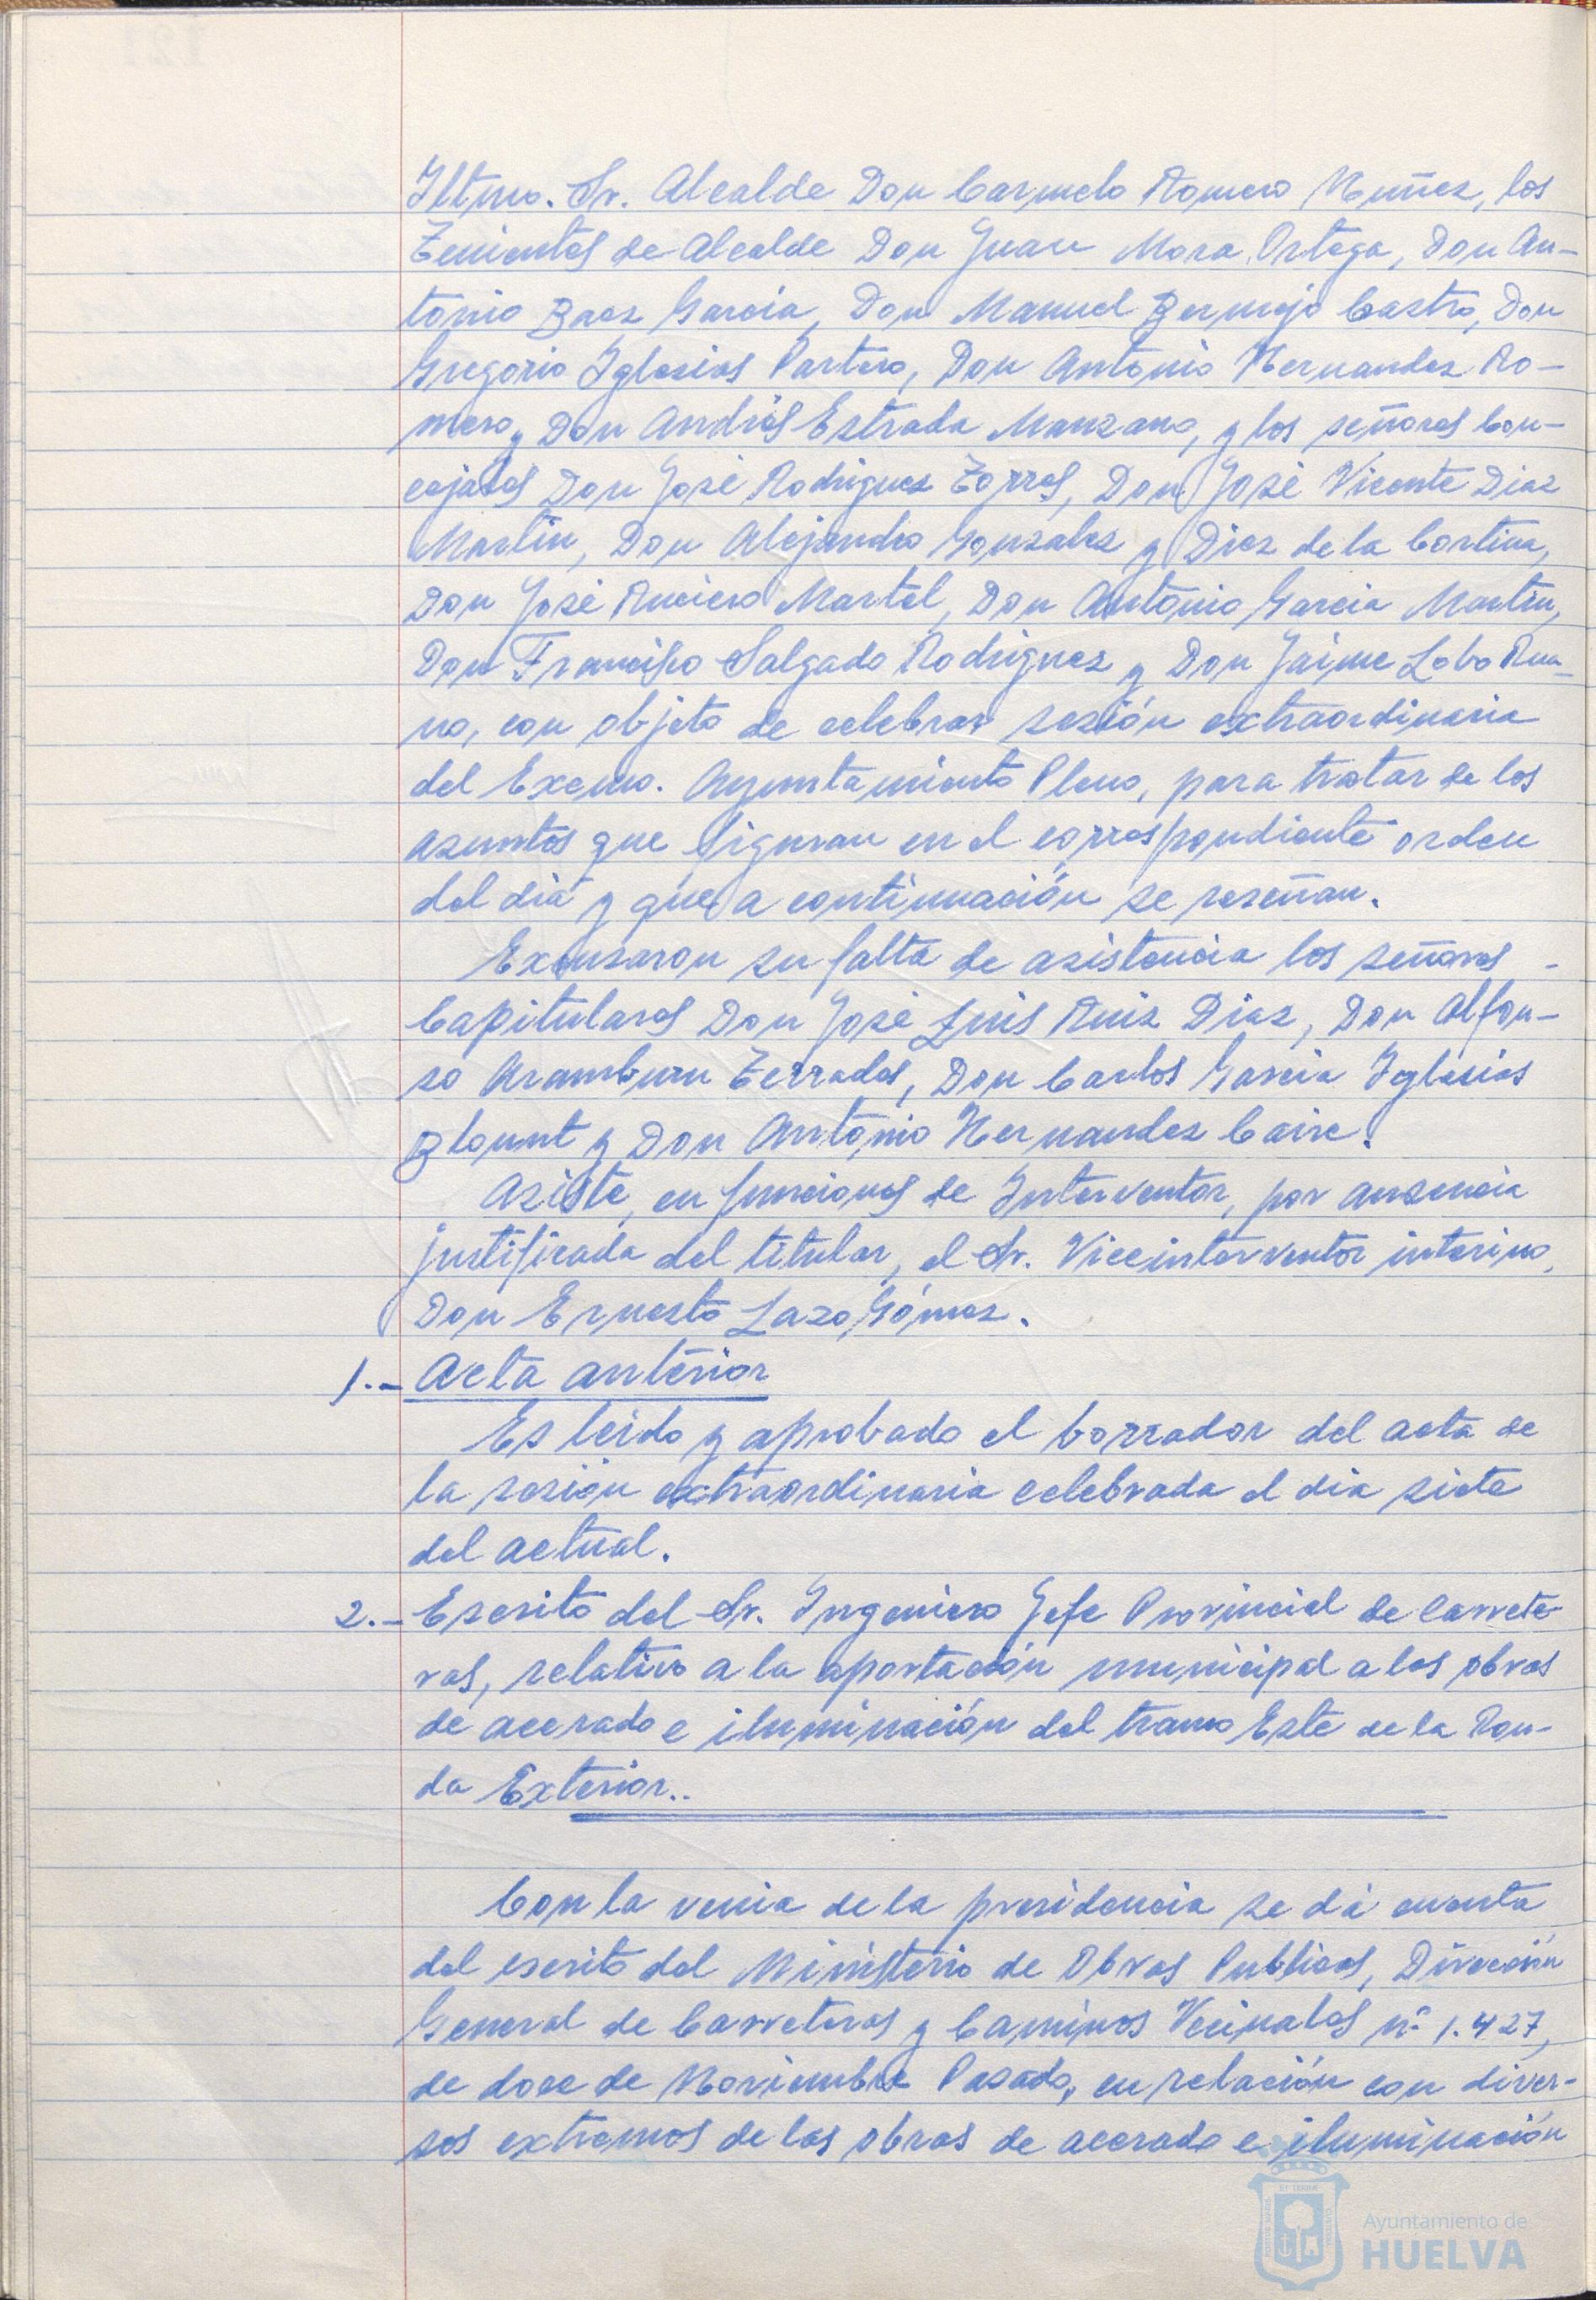 Iltmo. Sr. Alcalde Don Carmelo Romero Nuñez, los
Tenientes de Alcalde Don Juan Mora Ortega, Don An-
tonio Baez Garcia, Don Manuel Bermejo Castro, Don
Gregorio Iglesias Partero, Don Antonio Hernandez Ro-
mero y Don Andrés Estrada Manzano, y los señores Con-
cejales Don José Rodriguez Torres, Don José Vicente Diaz
Martin, Don Alejandro Gonzalez y Diez de la Cortina,
Don José Runciero Martel, Don Antonio Garcia Martin,
Don Francisco Salgado Rodriguez y Don Jaime Lobo Rua-
no, con objeto de celebrar sesión extraordinaria
del Excmo. Ayuntamiento Pleno, para tratar de los
asuntos que figuran en el correspondiente orden
del dia y que a continuación se reseñan.
Excusaron su falta de asistencia los señores -
Capitulares Don José Luis Ruiz Diaz, Don Alfon-
so Aramburu Terrades, Don Carlos Garcia Iglesias
Blount y Don Antonio Hernandez Caire.
Asiste, en funciones de Interventor, por ausencia
justificada del titular, el Sr. Viceinterventor interino,
Don Ernesto Lazo Gómez.
1.- Acta anterior
Es leido y aprobado el borrador del acta de
la sesión extraordinaria celebrada el dia siete
del actual.
2.- Escrito del Sr. Ingeniero Jefe Provincial de Carrete-
ras, relativo a la aportación municipal a las obras
de acerado e iluminación del tramo Este de la Ron-
da Exterior..
Con la venia de la presidencia se dá cuenta
del escrito del Ministerio de Obras Publicas, Dirección
General de Carreteras y Caminos Vecinales nº 1.427,
de doce de Noviembre Pasado, en relación con diver-
sos extremos de las obras de acerado e iluminación
Ayuntamiento de
HUELVA